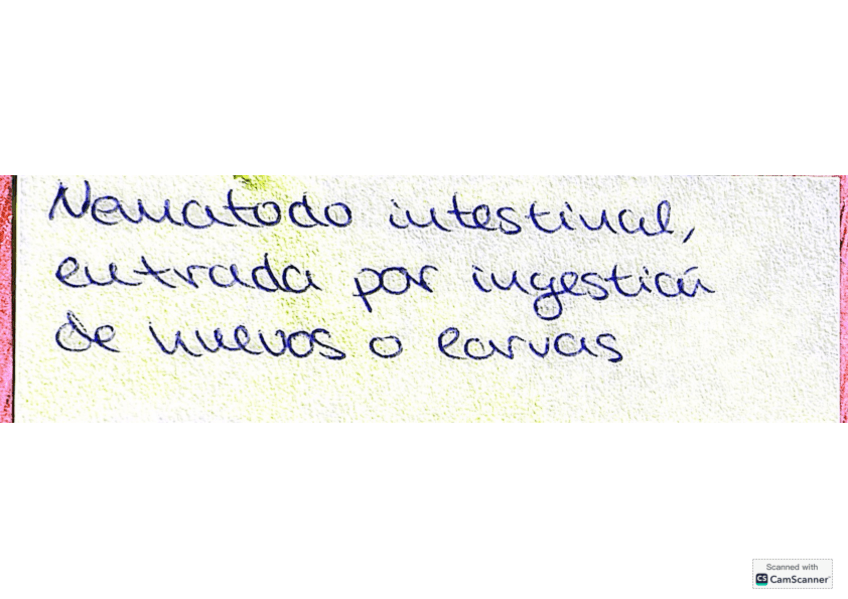 Nematodo intestinal,
entrada por ingestión
de huevos o larvas
Scanned with
CS CamScanner